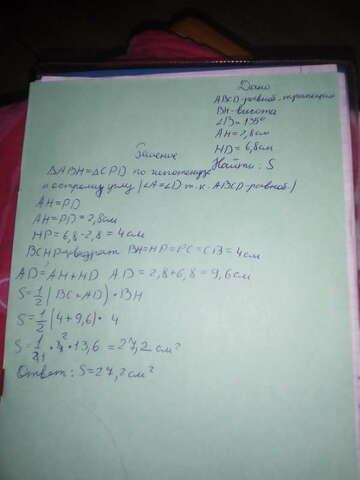 Дано
ABCD-равноб. трапеция
BH-высота
∠B=135°
AH=2,8см
HD=6,8см
Найти: S
Решение
ΔABH=ΔCPD по гипотенузе
и острому углу (∠A=∠D т.к. ABCD-равноб.)
AH=PD
AH=PD=2,8см
HP=6,8-2,8=4см
BCHP-квадрат BH=HP=PC=CB=4см
AD=AH+HD AD=2,8+6,8=9,6см
S=1/2(BC+AD)·BH
S=1/2(4+9,6)·4
S=1/2·4·13,6=27,2 см²
Ответ: S=27,2см²